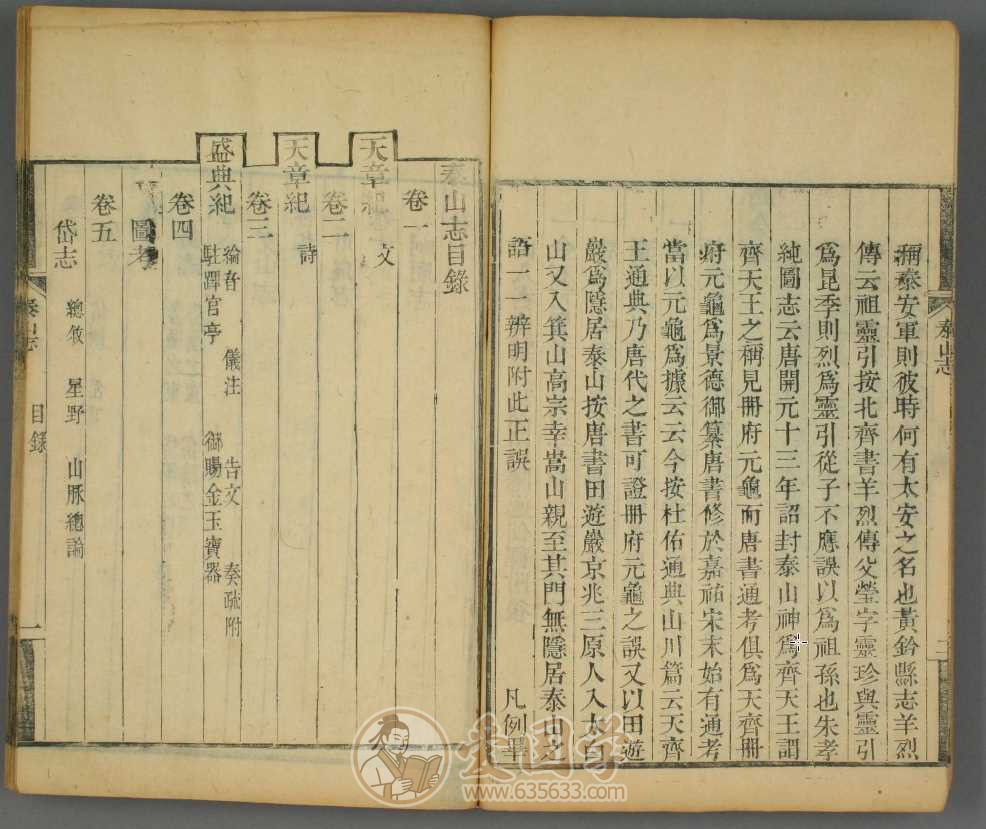 稱泰安軍則彼時何有太安之名也黃鈐縣志羊烈
傳云祖靈引按北齊書羊烈傳父瑩字靈珍與靈引
爲昆季則烈爲靈引從子不應誤以爲祖孫也朱孝
純圖志云唐開元十三年詔封泰山神爲齊天王謂
齊天王之稱見冊府元龜而唐書通考俱爲天齊冊
府元龜爲景德御纂唐書修於嘉祐宋末始有通考
當以元龜爲據云云今按杜佑通典山川篇云天齊
王通典乃唐代之書可證冊府元龜之誤又以田遊
嚴爲隱居泰山按唐書田遊嚴京兆三原人入太白
山又入箕山高宗幸嵩山親至其門無隱居泰山之
語一一辨明附此正誤 凡例畢
泰山志
二
泰山志目錄
卷一
天章紀 文
卷二
天章紀 詩
卷三
盛典紀 綸音 儀注 告文 奏疏附
駐蹕官亭 御賜金玉寶器
卷四
圖考
卷五
岱志 總敘 星野 山脈總論
泰山志 目錄 一
愛國學
www.635633.com